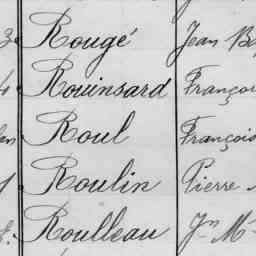 Rougé Jean B
Rouinsard Franço
Roul François
Roulin Pierre
Roulleau Jn M